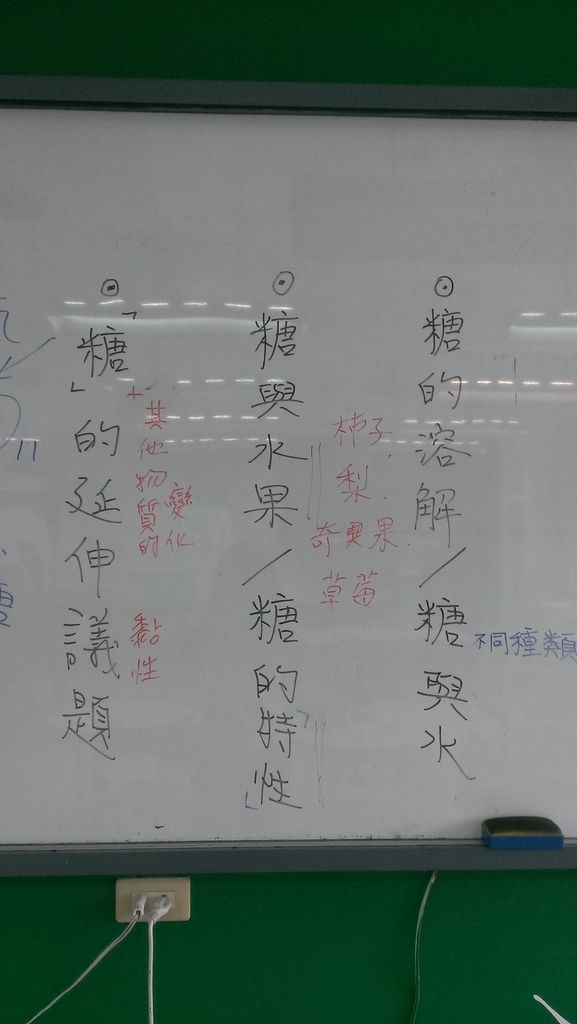 ⊙糖的溶解／糖與水
不同種類
柿子.
梨.
奇異果.
草莓
⊙糖與水果／糖的「特性」
⊙「糖」的延伸議題
+其他物質的
變化
黏性